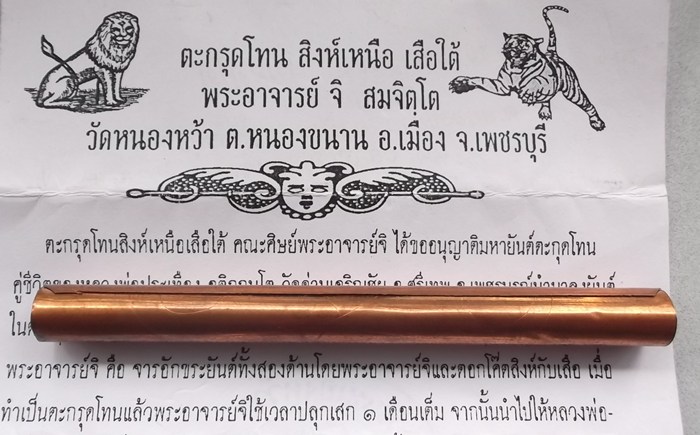 ตะกรุดโทน สิงห์เหนือ เสือใต้
พระอาจารย์ จิ สมจิตฺโต
วัดหนองหว้า ต.หนองขนาน อ.เมือง จ.เพชรบุรี
ตะกรุดโทนสิงห์เหนือเสือใต้ คณะศิษย์พระอาจารย์จิ ได้ขออนุญาติมหายันต์ตะกุดโทน
คู่ชีวิตของหลวงพ่อประเทือง
ใน
พระอาจารย์จิ คือ จารอักขระยันต์ทั้งสองด้านโดยพระอาจารย์จิและตอกโค๊ตสิงห์กับเสือ เมื่อ
ทำเป็นตะกรุดโทนแล้วพระอาจารย์จิใช้เวลาปลุกเสก ๑ เดือนเต็ม จากนั้นนำไปให้หลวงพ่อ-